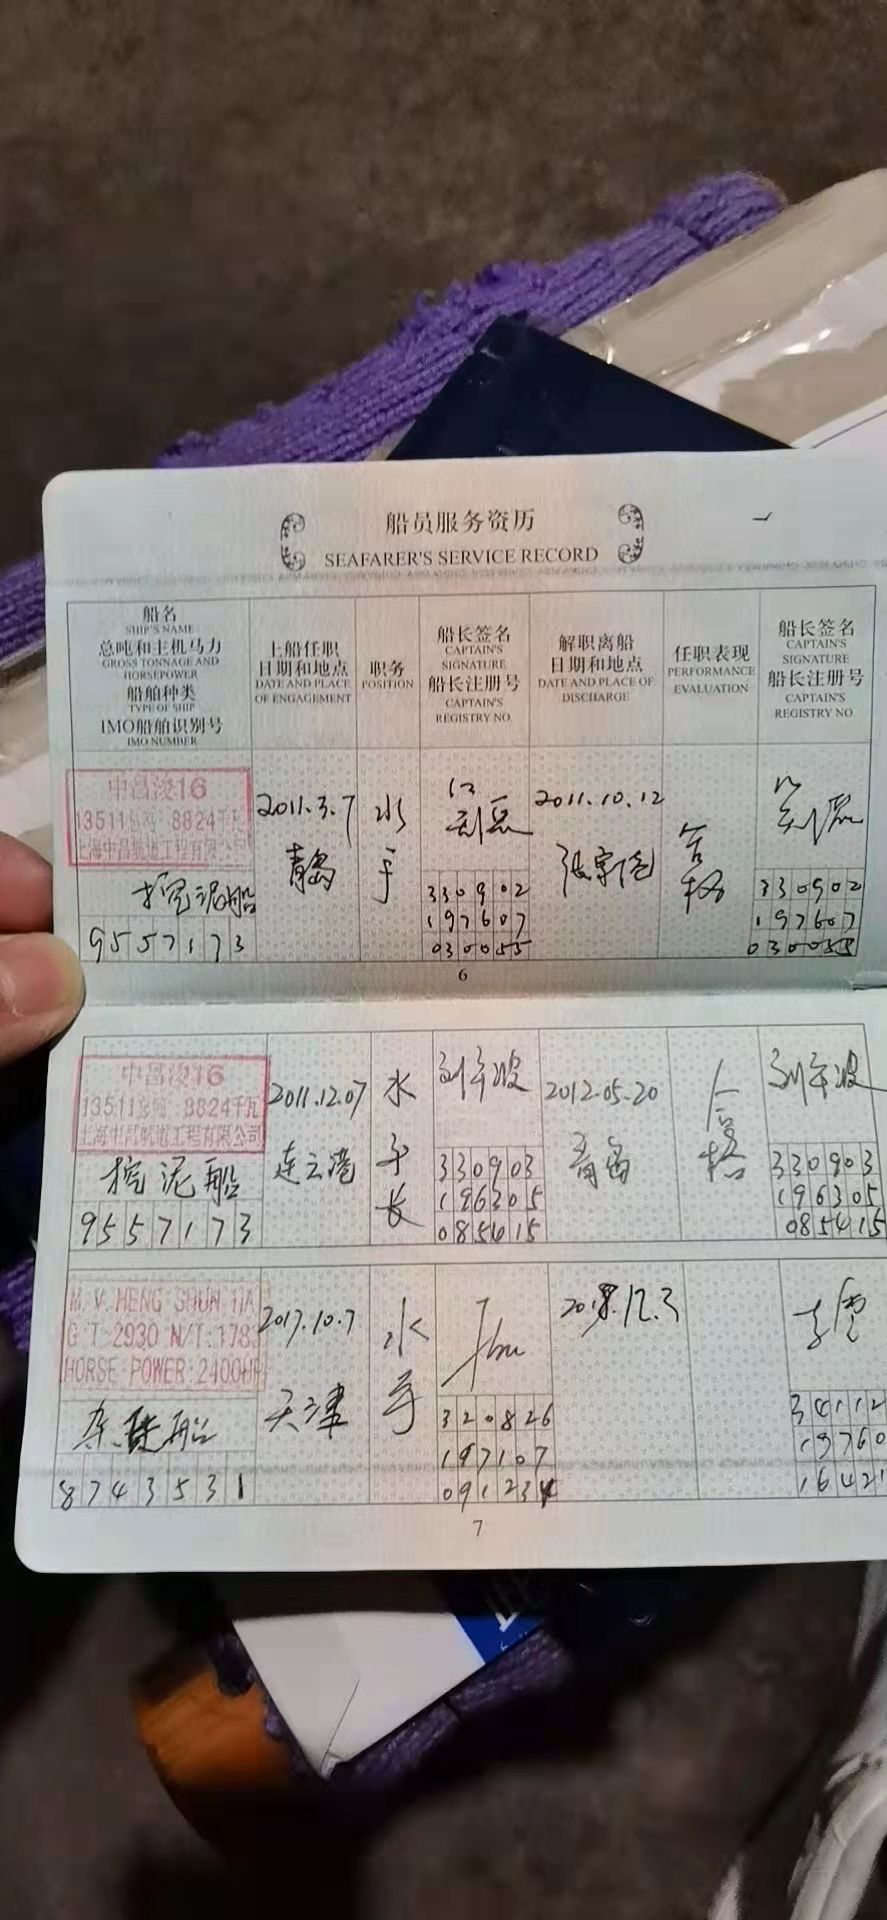 船员服务资历
SEAFARER'S SERVICE RECORD
船名
SHIP'S NAME
总吨和主机马力
GROSS TONNAGE AND
HORSEPOWER
船舶种类
TYPE OF SHIP
IMO船舶识别号
IMO NUMBER
上船任职
日期和地点
DATE AND PLACE
OF ENGAGEMENT
职务
POSITION
船长签名
CAPTAIN'S
SIGNATURE
船长注册号
CAPTAIN'S
REGISTRY NO.
解职离船
日期和地点
DATE AND PLACE OF
DISCHARGE
任职表现
PERFORMANCE
EVALUATION
船长签名
CAPTAIN'S
SIGNATURE
船长注册号
CAPTAIN'S
REGISTRY NO
中昌浚16
13511总吨 8824千瓦
上海中昌航道工程有限公司
挖泥船
9557173
2011.3.7
青岛
水
手
330902
197607
030055
2011.10.12
合
格
330902
197607
030055
6
中昌浚16
13511总吨 8824千瓦
上海中昌航道工程有限公司
挖泥船
9557173
2011.12.07
连云港
水
手
长
330903
196305
085415
2012.05.20
青岛
合
格
330903
196305
085415
M.V.HENG SHUN
G T:2930 N/T:178
HORSE POWER:2400HP
杂货船
8743531
2017.10.7
天津
水
手
320826
197107
09123
12.3
34112
19760
16421
7